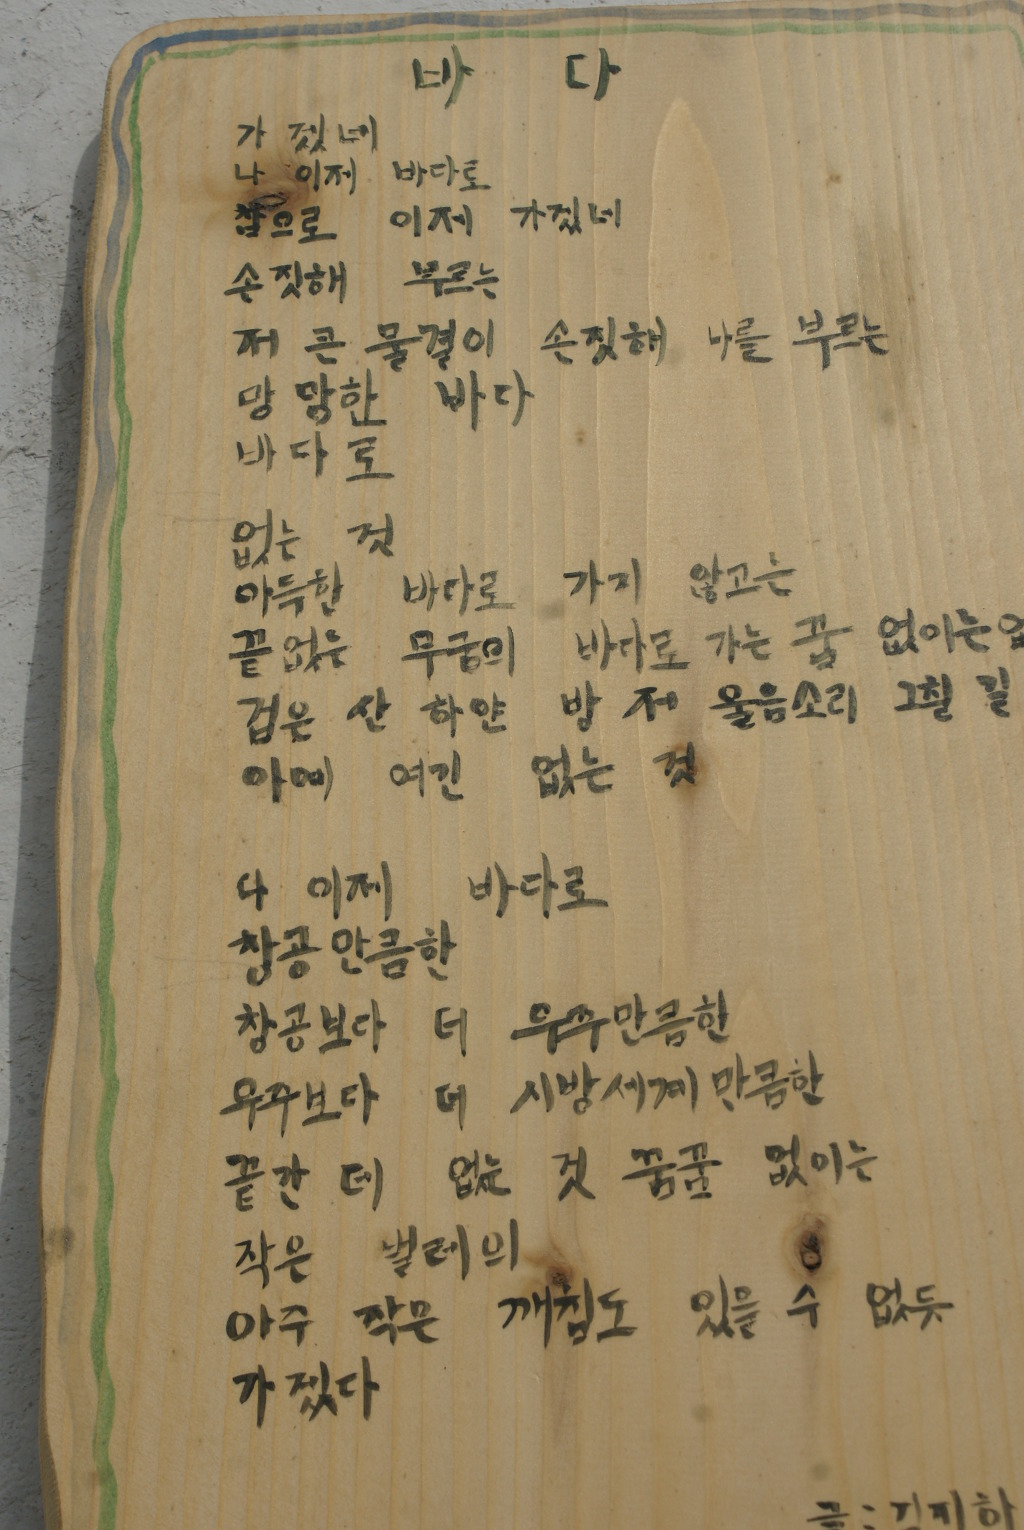 바 다
가 겠네
나 이제 바다로
참으로 이제 가겠네
손짓해 부르는
저 큰 물결이 손짓해 나를 부르는
망망한 바다
바다로
없는 것
아득한 바다로 가지 않고는
끝없는 무궁의 바다로 가는 꿈 없이는 없
검은 산 하얀 방 저 울음소리 그칠 길
아예 여긴 없는 것
나 이제 바다로
창공만큼한
창공보다 더 우주만큼한
우주보다 더 시방세계만큼한
끝간 데 없는 것 꿈꿈 없이는
작은 벌레의
아주 작은 깨침도 있을 수 없듯
가겠다
글: 김지하